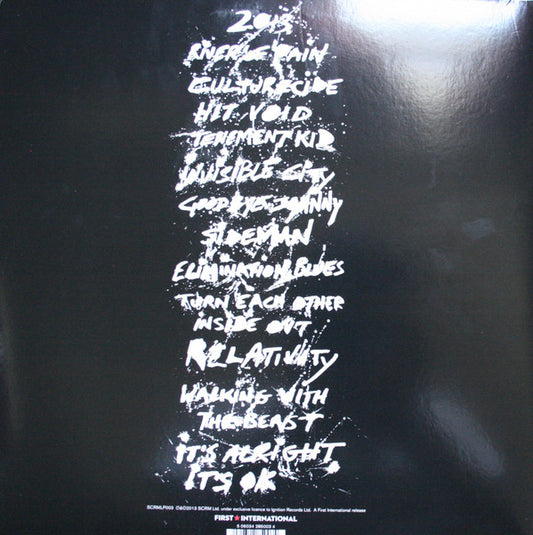 2013
RIVER OF PAIN
CULTURECIDE
HIT VOID
TENEMENT KID
INVISIBLE CITY
GOODBYE JOHNNY
SIDEMAN
ELIMINATION BLUES
TURN EACH OTHER
INSIDE OUT
RELATIVITY
WALKING WITH
THE BEAST
IT'S ALRIGHT
IT'S OK
SCRMLP003 ℗&©2013 SCRM Ltd. under exclusive licence to Ignition Records Ltd. A First International release
FIRST★INTERNATIONAL
5 06034 285003 4